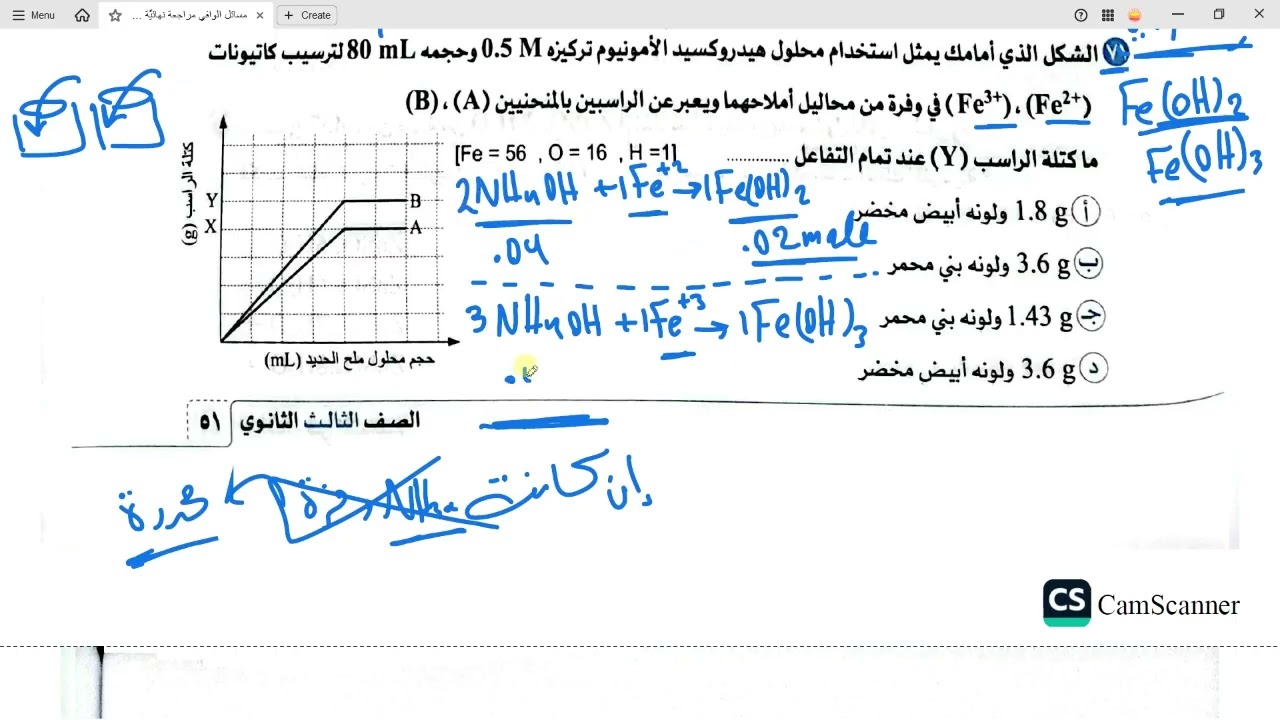 Menu
مسائل الوافي مراجعة نهائيَّة ...
Create
٧١ الشكل الذي أمامك يمثل استخدام محلول هيدروكسيد الأمونيوم تركيزه 0.5 M وحجمه 80 mL لترسيب كاتيونات
(Fe²⁺) ، (Fe³⁺) في وفرة من محاليل أملاحهما ويعبر عن الراسبين بالمنحنيين (A) ، (B)
Fe(OH)2
Fe(OH)3
ما كتلة الراسب (Y) عند تمام التفاعل ..............
[Fe = 56 , O = 16 , H =1]
كتلة الراسب (g)
Y
X
B
A
حجم محلول ملح الحديد (mL)
2NH4OH + 1Fe+2 → 1Fe(OH)2
.04
.02 mole
3NH4OH + 1Fe+3 → 1Fe(OH)3
أ 1.8 g ولونه أبيض مخضر
ب 3.6 g ولونه بني محمر
جـ 1.43 g ولونه بني محمر
د 3.6 g ولونه أبيض مخضر
الصف الثالث الثانوي ٥١
إن كانت
CS CamScanner